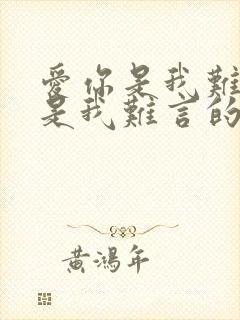 愛你是我難
是我難言的
黃鴻年